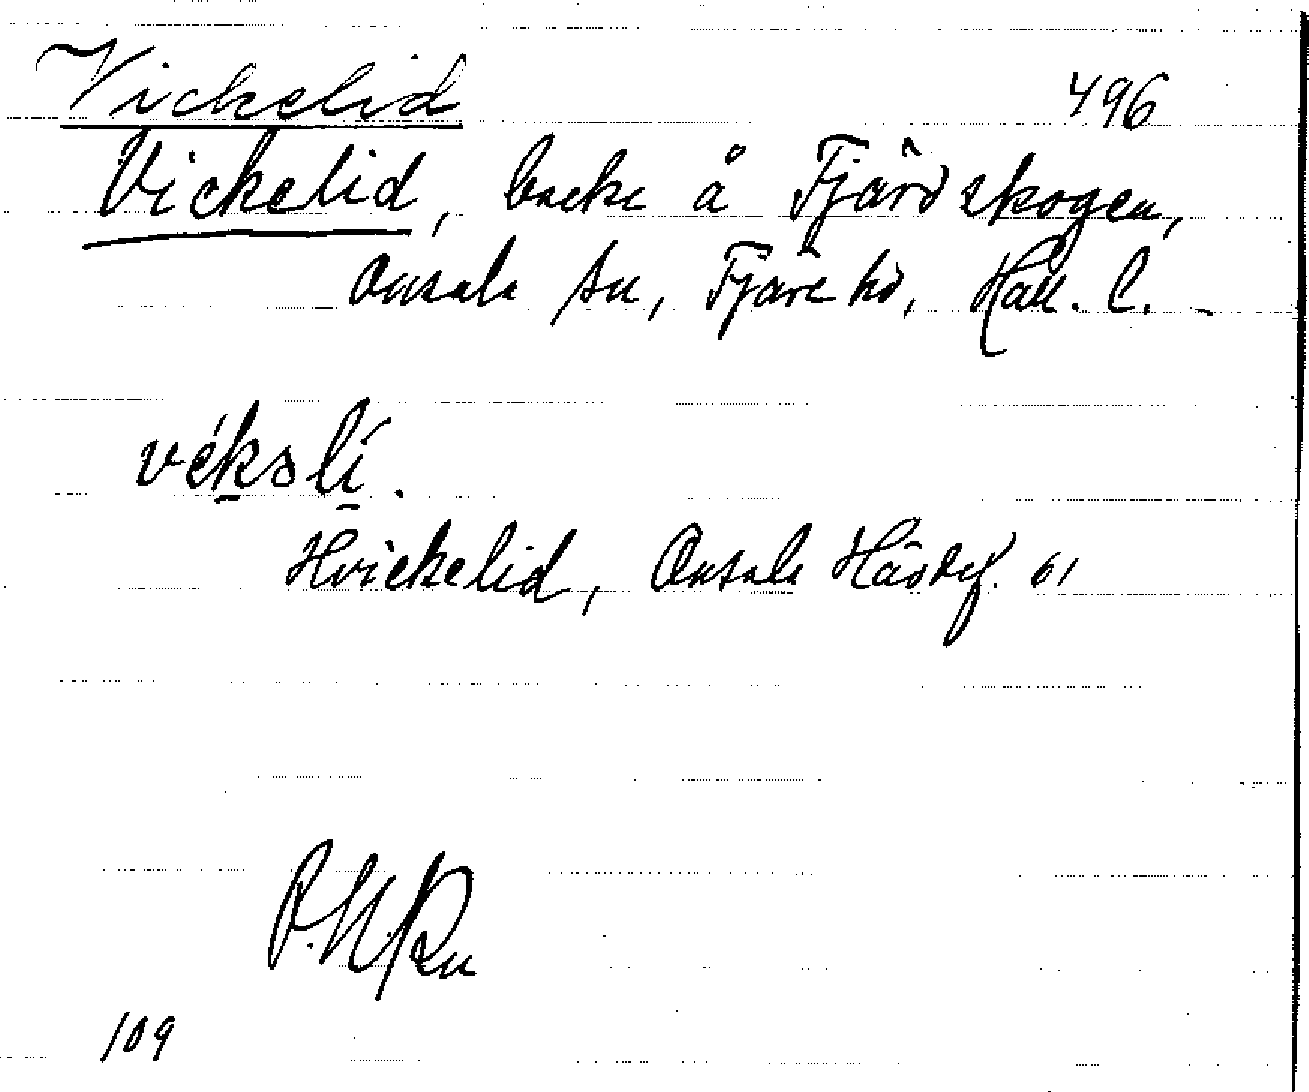 Vickelid 496
Vickelid, backe å Fjärdskogen,
Onsala sn, Fjäre hd, Hall. l.
vékəlí.
Hvickelid, Onsala Häskf. 61
109